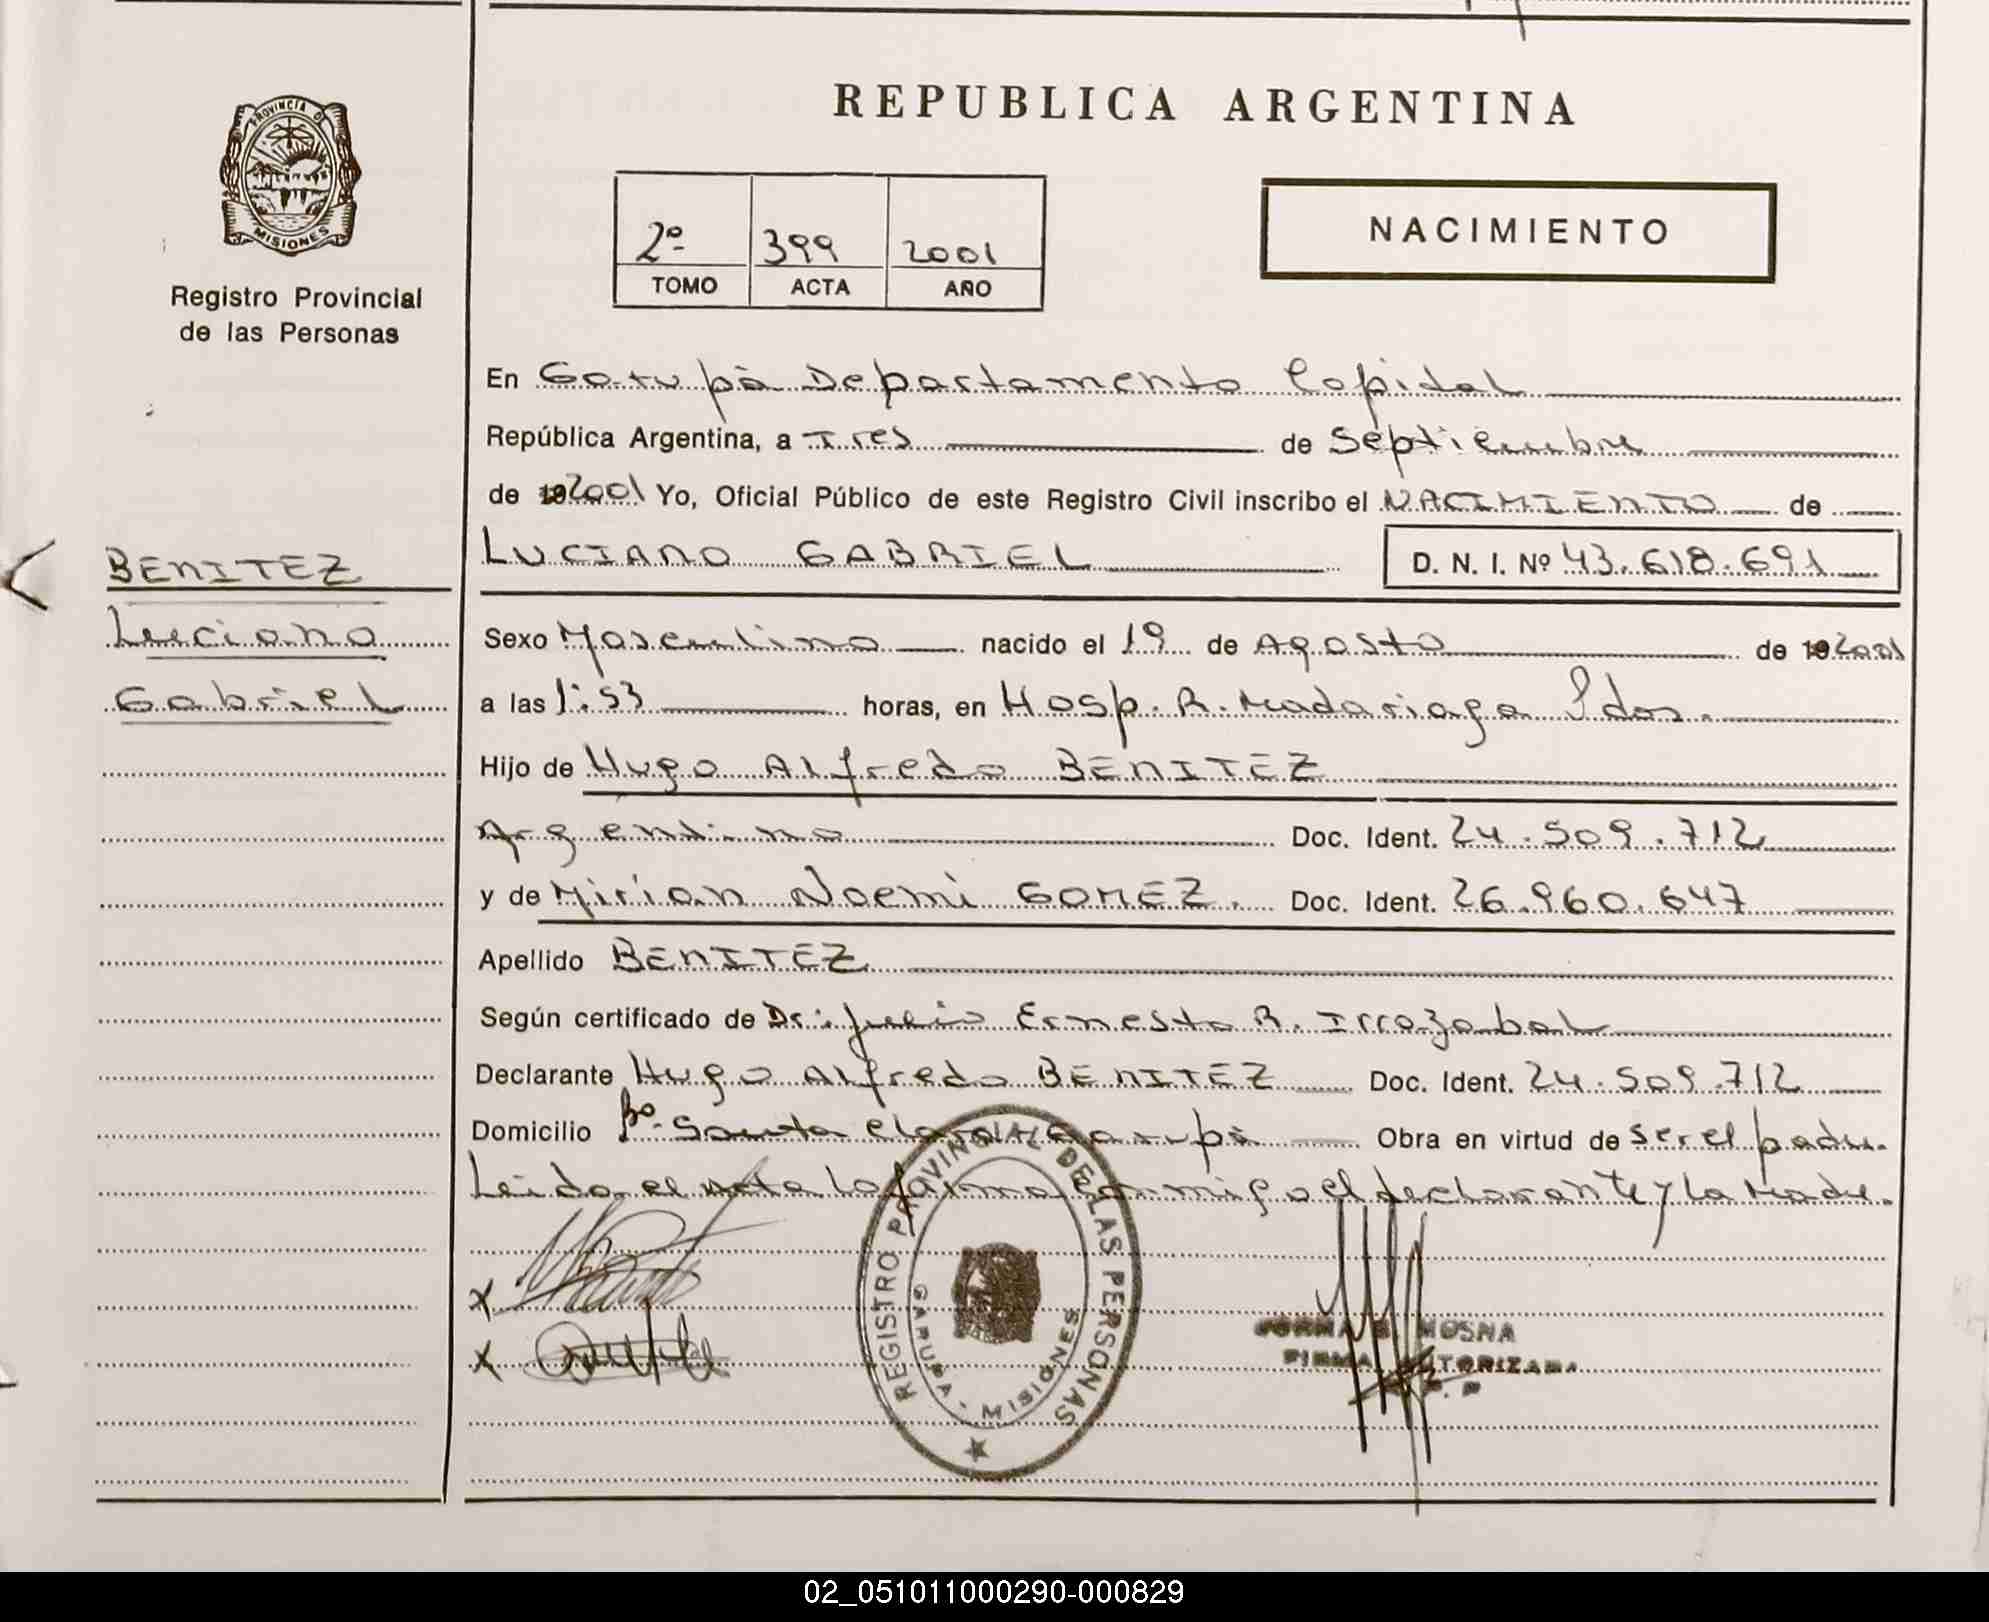 REPUBLICA ARGENTINA
PROVINCIA D
MISIONES
Registro Provincial
de las Personas
2º 399 2001
TOMO ACTA AÑO
NACIMIENTO
En Garupá Departamento Capital
República Argentina, a Tres de Septiembre
de 192001 Yo, Oficial Público de este Registro Civil inscribo el NACIMIENTO de
LUCIANO GABRIEL D. N. I. Nº 43.618.691
BENITEZ
Luciano
Gabriel
Sexo Masculino nacido el 19 de Agosto de 192001
a las 1:53 horas, en Hosp. R. Madariaga Pdas.
Hijo de Hugo Alfredo BENITEZ
Argentino Doc. Ident. 24.509.712
y de Mirian Noemi GOMEZ. Doc. Ident. 26.960.647
Apellido BENITEZ
Según certificado de Dr: Julio Ernesto R. Irrazabal
Declarante Hugo Alfredo BENITEZ Doc. Ident. 24.509.712
Domicilio Bº Santa Clara Garupá Obra en virtud de ser el padre.
Leida el acta la firma conmigo el declarante y la Madre.
X
X
REGISTRO PROVINCIAL DE LAS PERSONAS
GARUPA - MISIONES
NORMA MOSNA
FIRMA AUTORIZADA
02_051011000290-000829